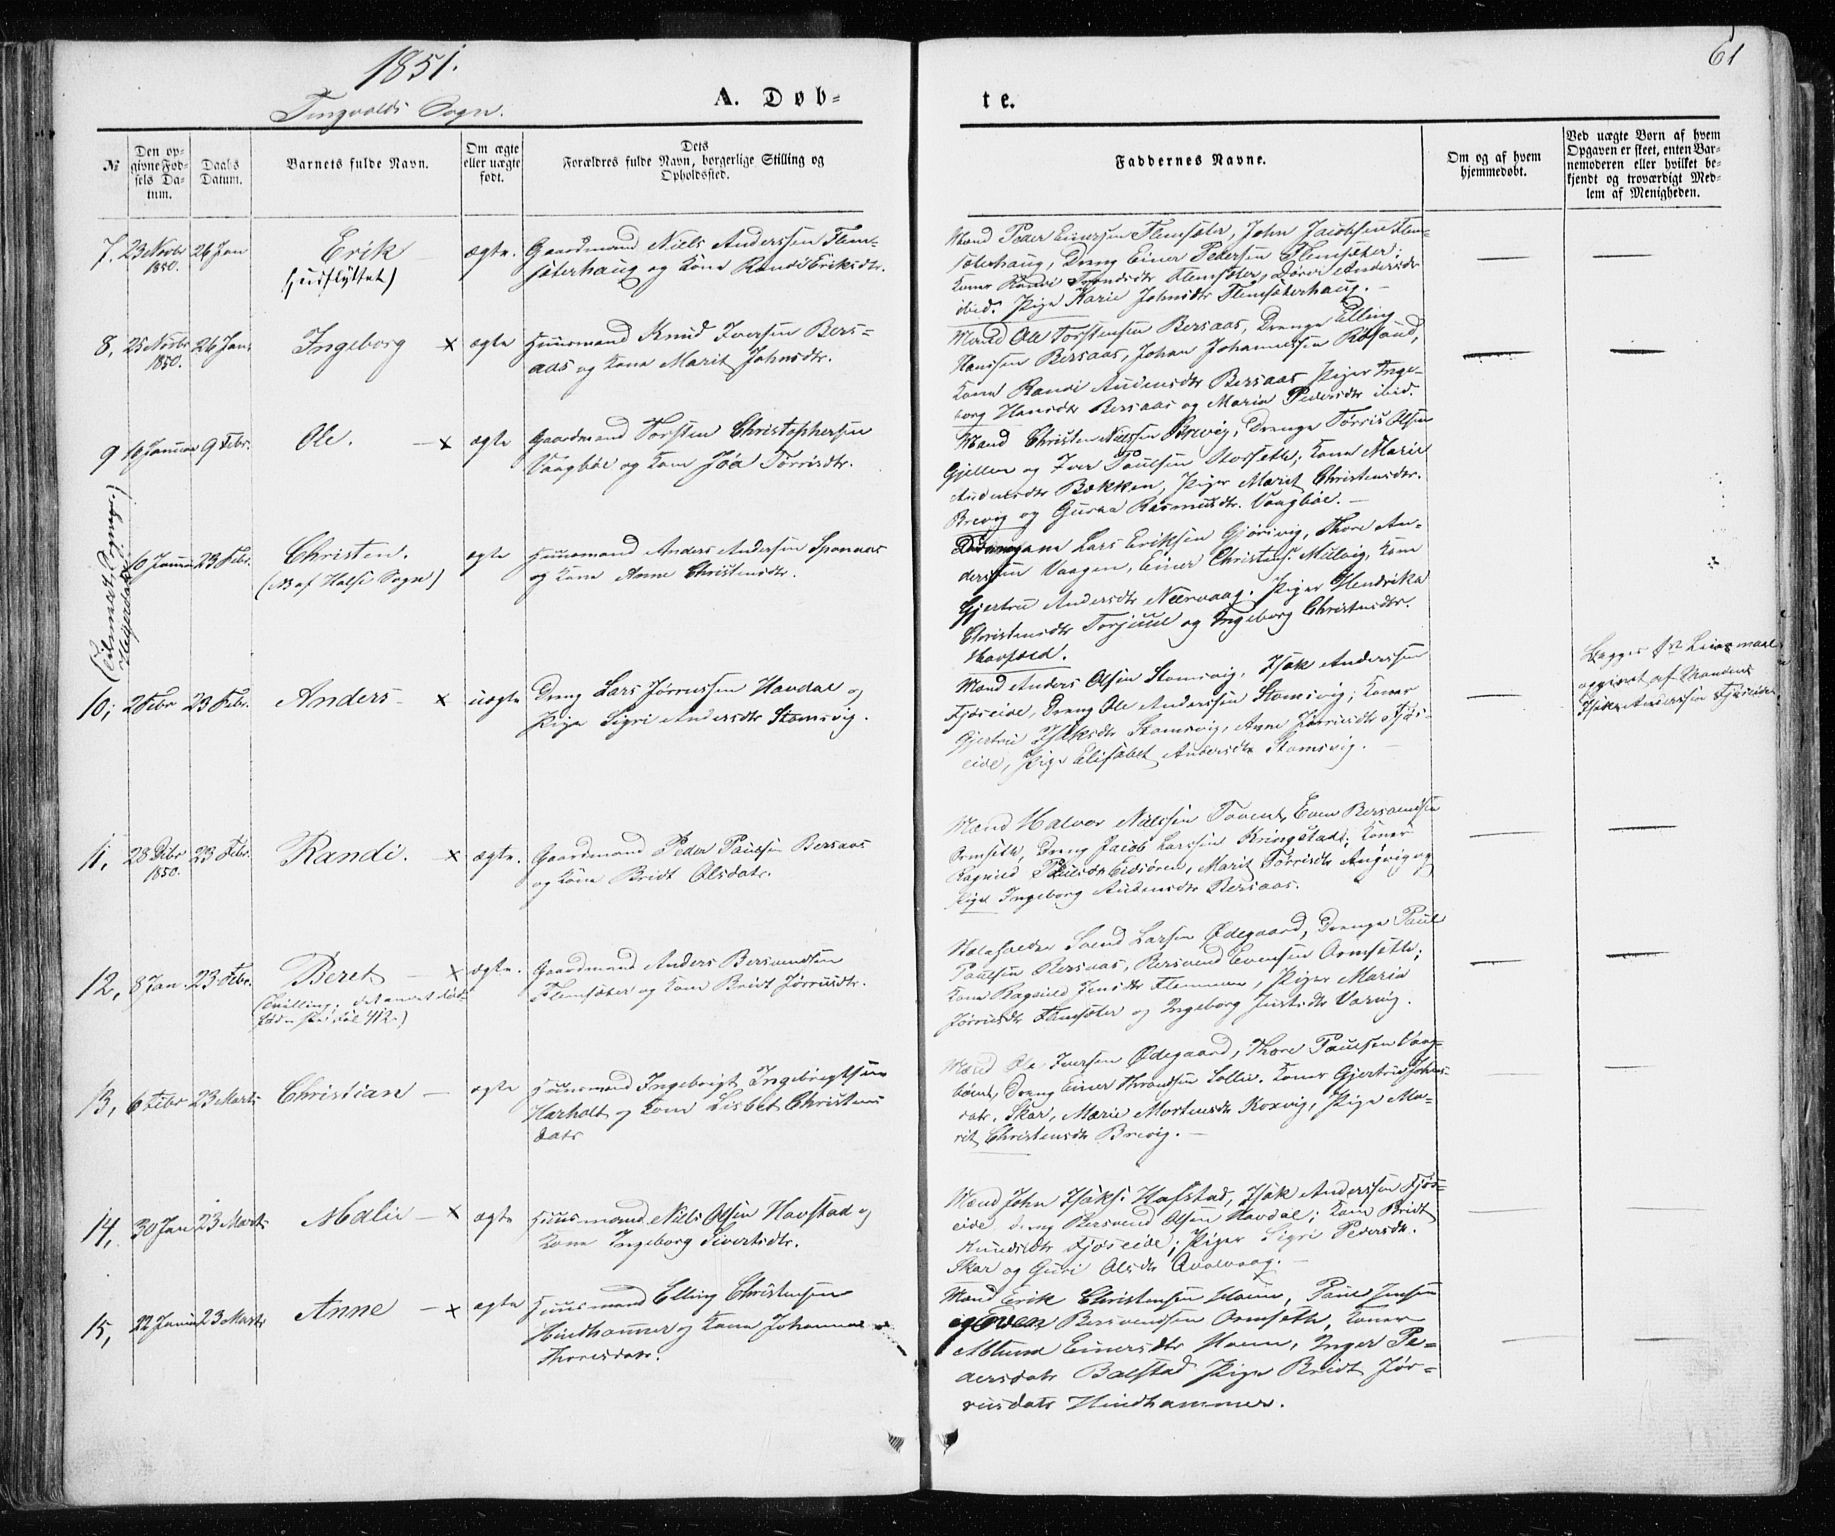 1851.
61
Tingvolds Sogn.
A. Døb-
te.
№
Den op-
givne Fød-
sels Da-
tum.
Daabs
Datum.
Barnets fulde Navn.
Om ægte
eller uægte
født.
Dets
Forældres fulde Navn, borgerlige Stilling og
Opholdssted.
Faddernes Navne.
Om og af hvem
hjemmedøbt.
Ved uægte Børn af hvem
Opgaven er skeet, enten Bar-
nemoderen eller hvilket be-
kjendt og troværdigt Med-
lem af Menigheden.
7. 23 Novbr 1850. 26 Jan
Erik
(udflyttet)
ægte.
Gaardmand Niels Anderssen Flem-
sæterhaug og Kone Randi Eriksdtr.
Mænd Peder Einersen Flemsæter, John Jacobsen Flem-
sæterhaug, Dreng Einer Pedersen Flemsæter;
Koner Randi Trondsdtr Flemsæter, Andersdtr
ibid. Pige Marie Johnsdtr Flemsæterhaug.
8, 25 Novbr 1850. 26 Jan,
Ingeborg x
ægte
Huusmand Knud Iversen Bers-
aas og Kone Marit Johnsdtr.
Mænd Ole Torstensen Bersaas, Drenge Elling
Hanssen Bersaas, Johan Johannessen Røsand,
Kone Randi Audensdtr Bersaas, Piger Inge-
borg Hansdtr Bersaas og Maria Pedersdtr ibid.
9 10 Januar 9 Febr.
Ole. x
ægte
Gaardmand Torsten Christophersen
Vaagbøe og Kone Joa Tørrisdtr.
Mænd Christen Nielssen Brevig, Drenge Tørris Olsen
Gjellen og Iver Paulsen Storseth; Kone Marie
Audensdtr Bækken, Piger Marit Christensdtr.
Brevig og Guraa Rasmusdtr. Vaagbøe.
6 Januar 23 Febr.
Christen.
(NB af Halse Sogn)
ægte
Huusmand Anders Andersen Sponaas
og Kone Anne Christensdtr.
Lars Eriksen Gjørsvig, Thore An-
derssen Vaagen, Einer Christens. Millvig, Kone
Gjertru Andersdtr Neervaag. Piger Hendrika
Christensdtr Torjuul og Ingeborg Christensdtr.
10; 2 Febr 23 Febr.
Anders x
uægte
Dreng Lars Jørrussen Havdal og
Pige Sigri Andersdtr Stomsvig.
Mænd Anders Olsen Stomsvig, Isak Anderssen
Fjøseide, Dreng Ole Anderssen Stomsvig; Koner
Gjertru Isaksdtr Stomsvig, Anne Jørrusdtr Fjøs-
eide, Pige Elisabet Andersdtr Stomsvig.
Begges 1ste Leiermaal
opgivet af Manden
Isak Anderssen Fjøseide
11, 28 Decbr 1850. 23 Febr.
Randi. x
ægte.
Gaardmand Peder Paulsen Bersaas
og Kone Bridt Olsdatr.
Mænd Halvor Nielssen Torvend, Even Bersvendsen
Ormseth, Dreng Jacob Larssen Kringstad; Koner
Ragnild Paulsdtr Eidsøren, Marit Tørrisdtr Angvig og
Pige Ingeborg Audensdtr Bersaas.
12, 8 Jan. 23 Febr.
Beret x
(Tvilling, det andet død-
ægte.
Gaardmand Anders Bersvendsen
Flemsæter og Kone Bridt Jørrusdtr.
Svend Larsen Ødegaard, Drenge Paul
Paulsen Bersaas, Bersvend Evensen Ormseth;
Kone Ragnild Jensdtr Flemmen, Piger Maria
Jørrusdtr Flemsæter og Ingeborg Justsdtr Varvig.
13, 6 Febr 23 Marts
Christian
ægte
Huusmand Ingebrigt Ingebrigtsen
Harholt og Kone Lisbet Christens
datr
Mænd Ole Iversen Ødegaard, Thore Paulsen Vaag-
bøent, Dreng Einer Throndsen Sollie. Koner Gjertru Johns-
datr. Skar, Marie Mortensdtr Koxvig, Pige Ma-
rit Christensdtr Brevig.
14, 30 Jan 23 Marts
Malie x
ægte
Huusmand Niels Olsen Havstad og
Kone Ingeborg Sivertsdtr.
Mænd John Isaks. Hafstad, Isak Anderssen Fjøs-
eide, Dreng Bersvend Olsen Havdal; Kone Bridt
Knudsdtr Fjøseide; Piger Sigri Pedersdtr.
Skar og Guri Olsdtr Qvalvaag.
15, 22 Januar 23 Marts
Anne x
ægte
Huusmand Elling Christensen
Hindhammer og Kone Johanna
Thoresdatr.
Mænd Erik Christensen Hoem, Paul Jensen
og Even Bersvendssen Ormseth, Koner
Ablund Einersdtr Hoem, Inger Pe-
dersdatr Bølstad Pige Bridt Jør-
rusdatr Hindhammer.